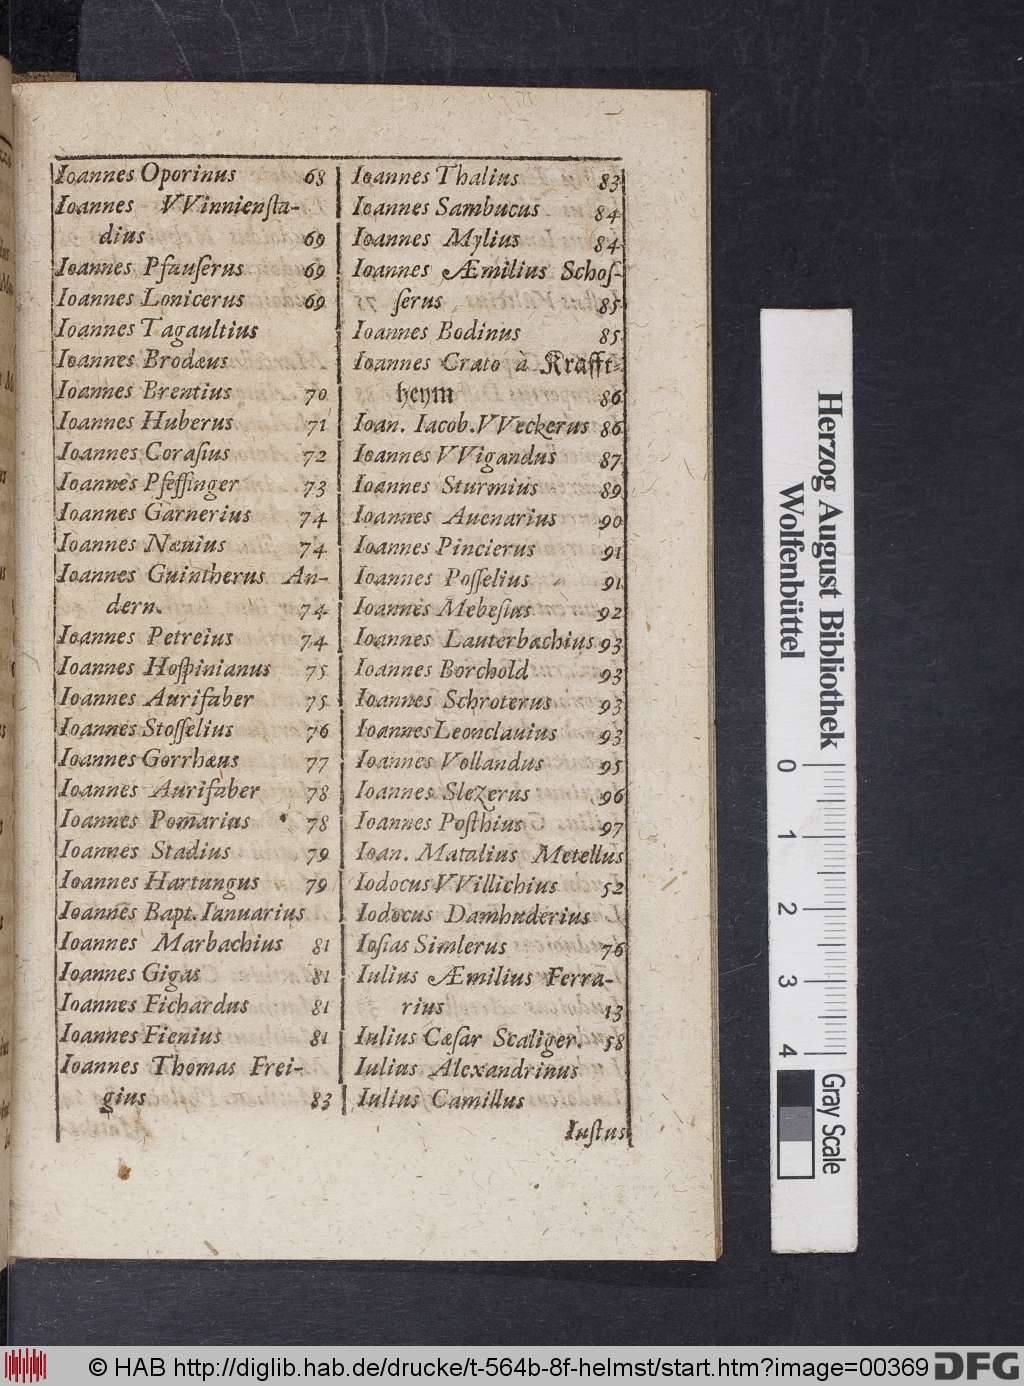 Ioannes Oporinus 68
Ioannes VVinnienſta-
dius 69
Ioannes Pfauſerus 69
Ioannes Lonicerus 69
Ioannes Tagaultius
Ioannes Brodæus
Ioannes Brentius 70
Ioannes Huberus 71
Ioannes Coraſius 72
Ioannes Pfeffinger 73
Ioannes Garnerius 74
Ioannes Nævius 74
Ioannes Guintherus An-
dern. 74
Ioannes Petreius 74
Ioannes Hoſpinianus 75
Ioannes Aurifaber 75
Ioannes Stoſſelius 76
Ioannes Gorrhæus 77
Ioannes Aurifaber 78
Ioannes Pomarius 78
Ioannes Stadius 79
Ioannes Hartungus 79
Ioannes Bapt. Ianuarius
Ioannes Marbachius 81
Ioannes Gigas 81
Ioannes Fichardus 81
Ioannes Fienius 81
Ioannes Thomas Frei-
gius 83
Ioannes Thalius 83
Ioannes Sambucus 84
Ioannes Mylius 84
Ioannes Æmilius Schoſ-
ſerus 85
Ioannes Bodinus 85
Ioannes Crato à Krafft-
heym 86
Ioan. Iacob. VVeckerus 86
Ioannes VVigandus 87
Ioannes Sturmius 89
Ioannes Auenarius 90
Ioannes Pincierus 91
Ioannes Poſſelius 91
Ioannes Mebeſius 92
Ioannes Lauterbachius 93
Ioannes Borchold 93
Ioannes Schroterus 93
Ioannes Leonclauius 93
Ioannes Vollandus 95
Ioannes Slezerus 96
Ioannes Poſthius 97
Ioan. Matalius Metellus
Iodocus VVillichius 52
Iodocus Damhuderius
Ioſias Simlerus 76
Iulius Æmilius Ferra-
rius 13
Iulius Cæſar Scaliger. 58
Iulius Alexandrinus
Iulius Camillus
Iuſtus
Herzog August Bibliothek
Wolfenbüttel
0 1 2 3 4
Gray Scale
© HAB http://diglib.hab.de/drucke/t-564b-8f-helmst/start.htm?image=00369
DFG